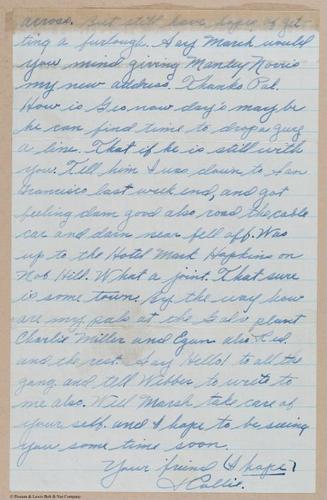 across. But still have hopes of get-
ting a furlough. Say Marsh would
you mind giving Mandy Norris
my new address. Thanks Pal.
How is Geo now day's maybe
he can find time to drop a guy
a line. That if he is still with
you. Tell him I was down to San
Francisco last week end, and got
feeling darn good also road the cable
car and darn near fell off. Was
up to the Hotel Mark Hopkins on
Nob Hill. What a joint. That sure
is some town. By the way how
are my pals at the plant
Charlie Miller and also Red
and the rest. Say Hello! to all the
gang and tell Webber to write to
me also. Well Marsh take care of
your self and I hope to be seeing
you some time soon.
Your friend (I hope)
Collie.
© Pioneer & Lewis Bolt & Nut Company